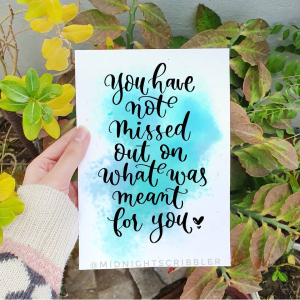 You have
not
missed
out on
what was
meant
for you
@MIDNIGHTSCRIBBLER